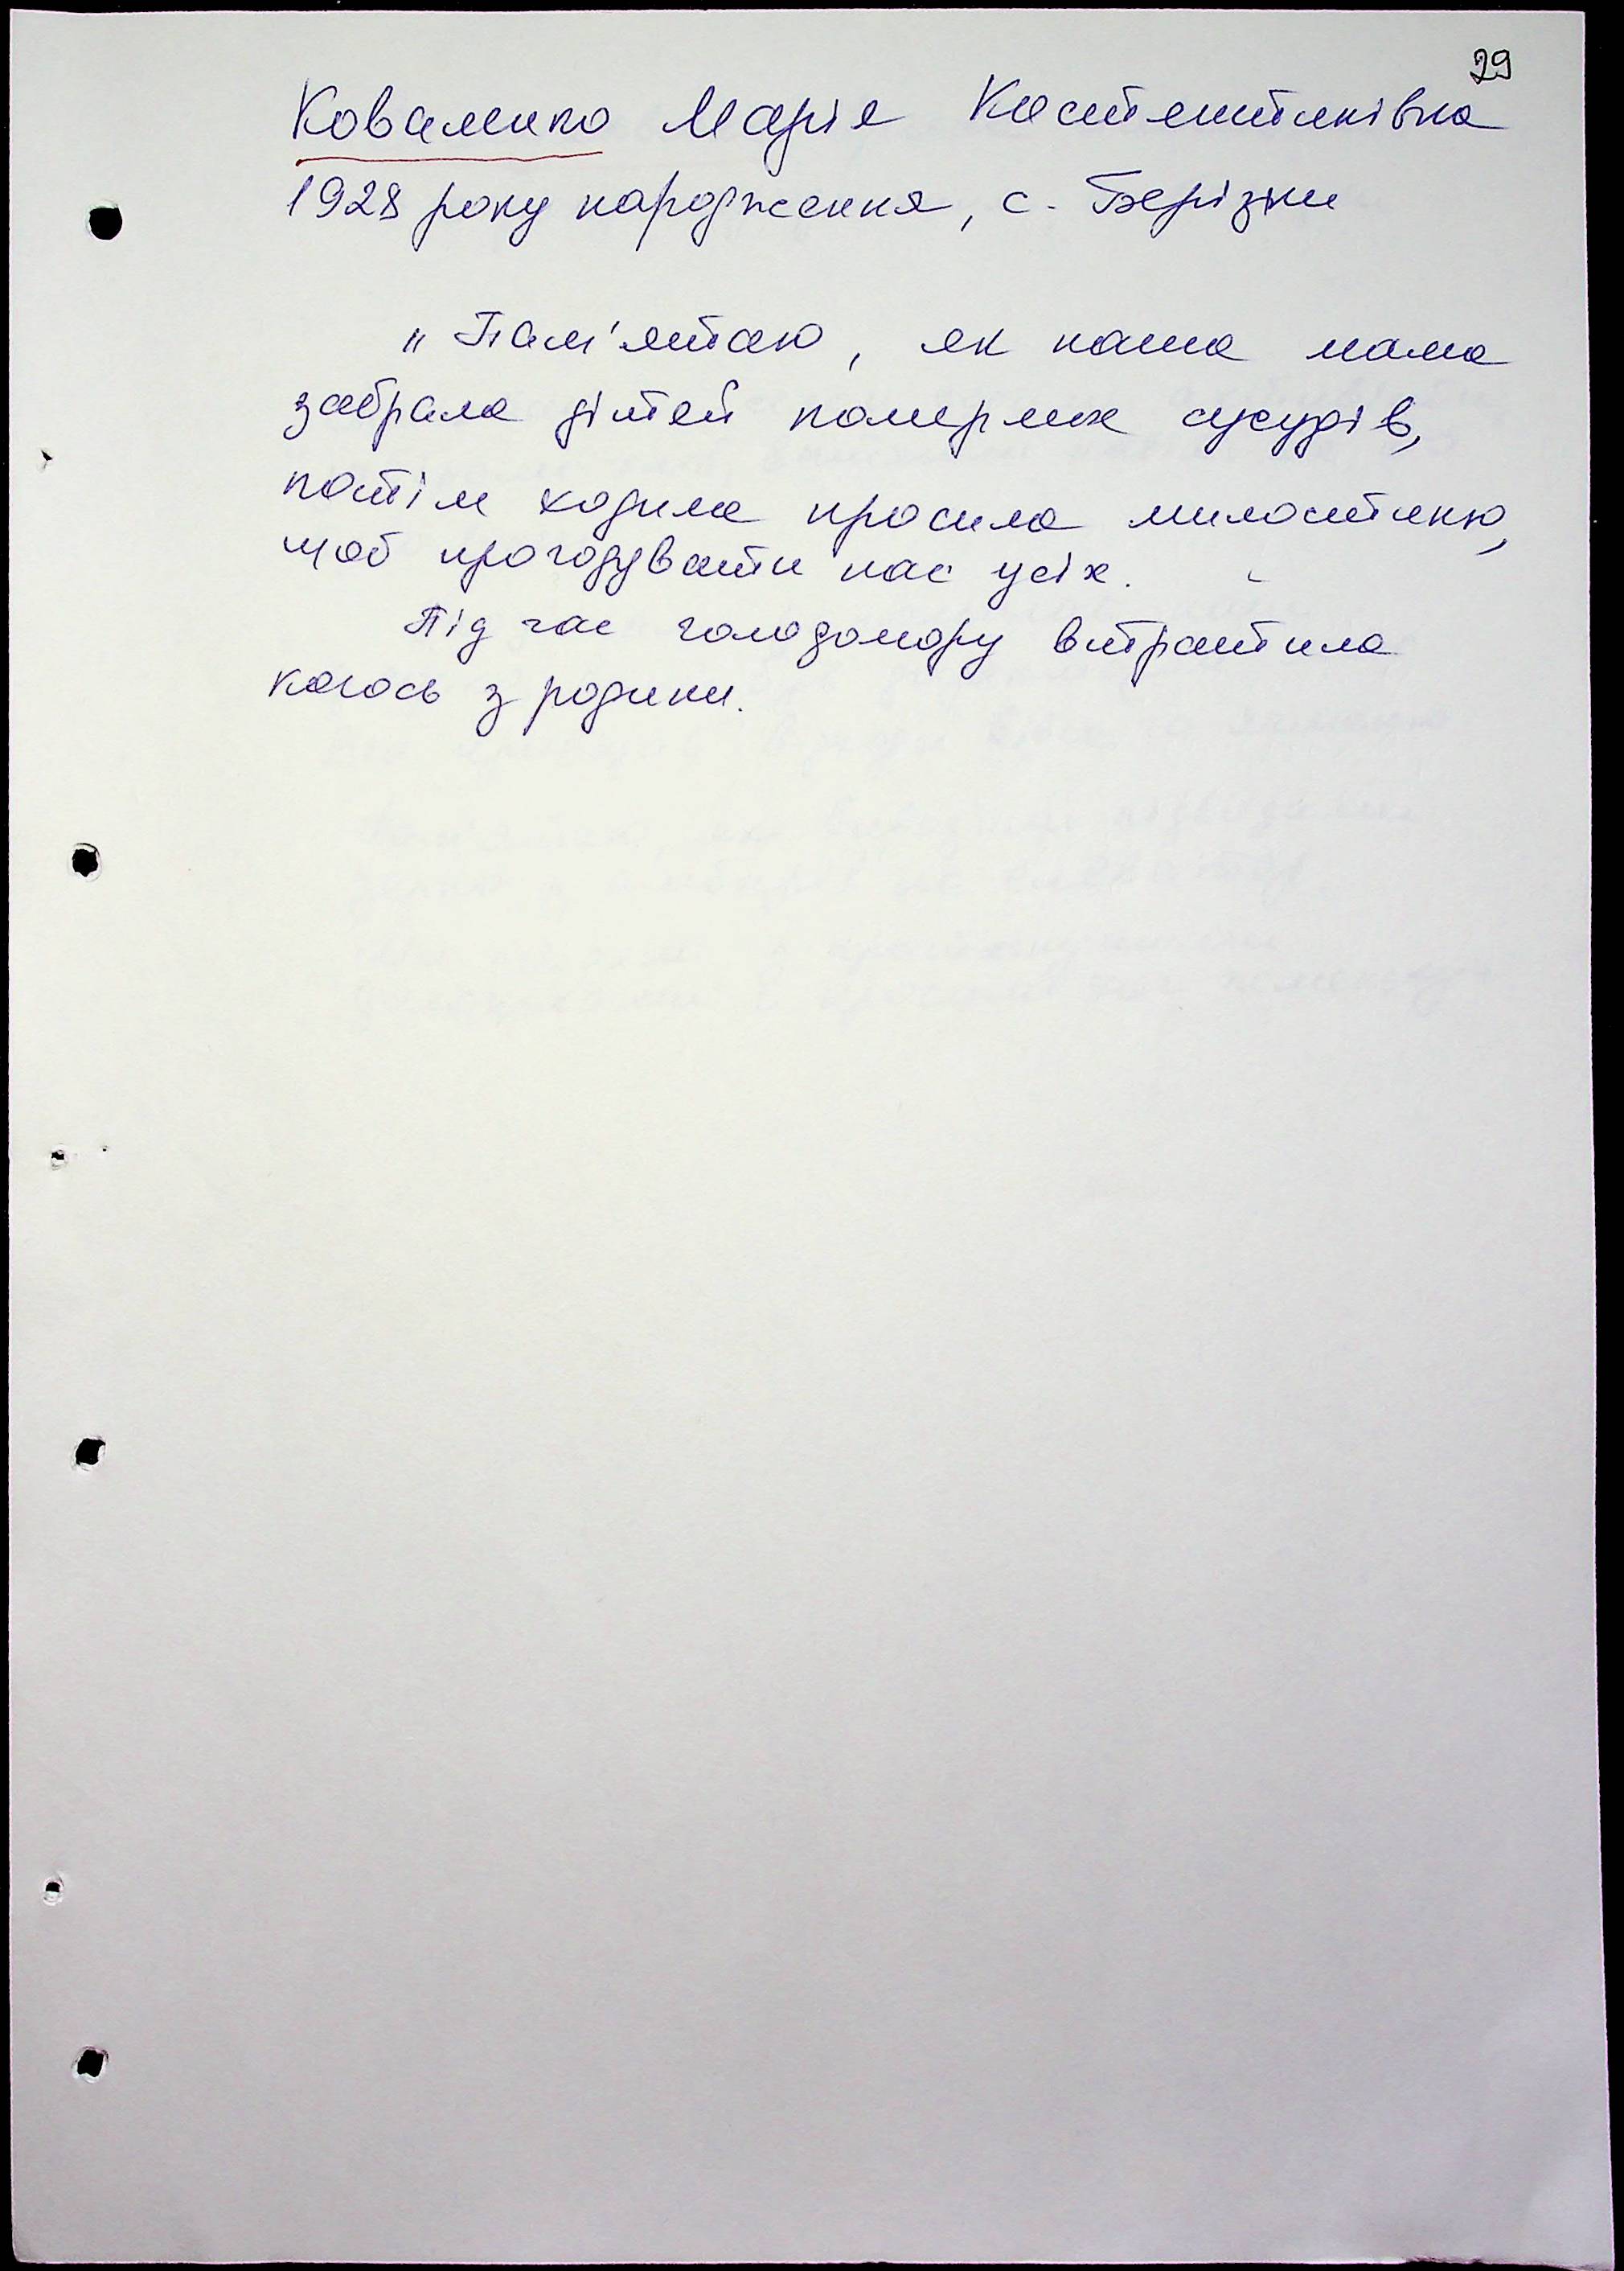 29
Коваленко Марія Костянтинівна
1928 року народження, с. Берізки
„ Пам'ятаю, як наша мама
забрала дітей померлих сусудів,
потім ходила просила милостиню,
щоб прогодувати нас усіх.
Під час голодомору втратила
когось з родини.